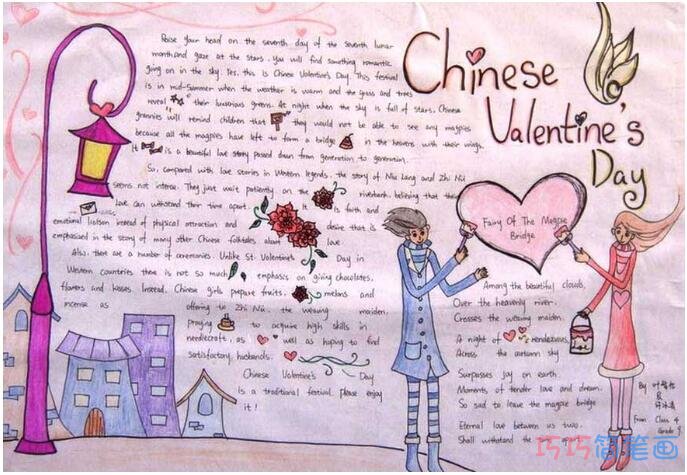 Chinese
Valentine's
Day
Raise your head on the seventh day of the seventh lunar
month and gaze at the stars. You will find something romantic
going on in the sky. Yes, this is Chinese Valentine's Day. This festival
is in mid-summer when the weather is warm and the grass and trees
reveal their luxurious greens. At night when the sky is full of stars, Chinese
grannies will remind children that they would not be able to see any magpies
because all the magpies have left to form a bridge in the heavens with their wings.
It is a beautiful love story passed down from generation to generation.
So, compared with love stories in Western legends, the story of Niu Lang and Zhi Nü
seems not intense. They just wait patiently on the riverbank, believing that their
love can withstand their time apart. It is faith and
emotional liaison instead of physical attraction and desire that is
emphasized in the story of many other Chinese folktales about love
Also, there are a number of ceremonies. Unlike St. Valentine's Day in
Western countries there is not so much emphasis on giving chocolates,
flowers and kisses. Instead, Chinese girls prepare fruits, melons and
incense as offering to Zhi Nü, the weaving maiden,
praying to acquire high skills in
needlecraft, as well as hoping to find
satisfactory husbands.
Chinese Valentine's Day
is a traditional festival. Please enjoy
it!
Fairy Of The Magpie
Bridge
Among the beautiful clouds,
Over the heavenly river,
Crosses the weaving maiden.
A night of rendezvous,
Across the autumn sky
Surpasses joy on earth.
Moments of tender love and dream.
So sad to leave the magpie bridge
Eternal love between us two,
Shall withstand the time apart.
By
&
From Class 4
Grade 9
巧巧简笔画